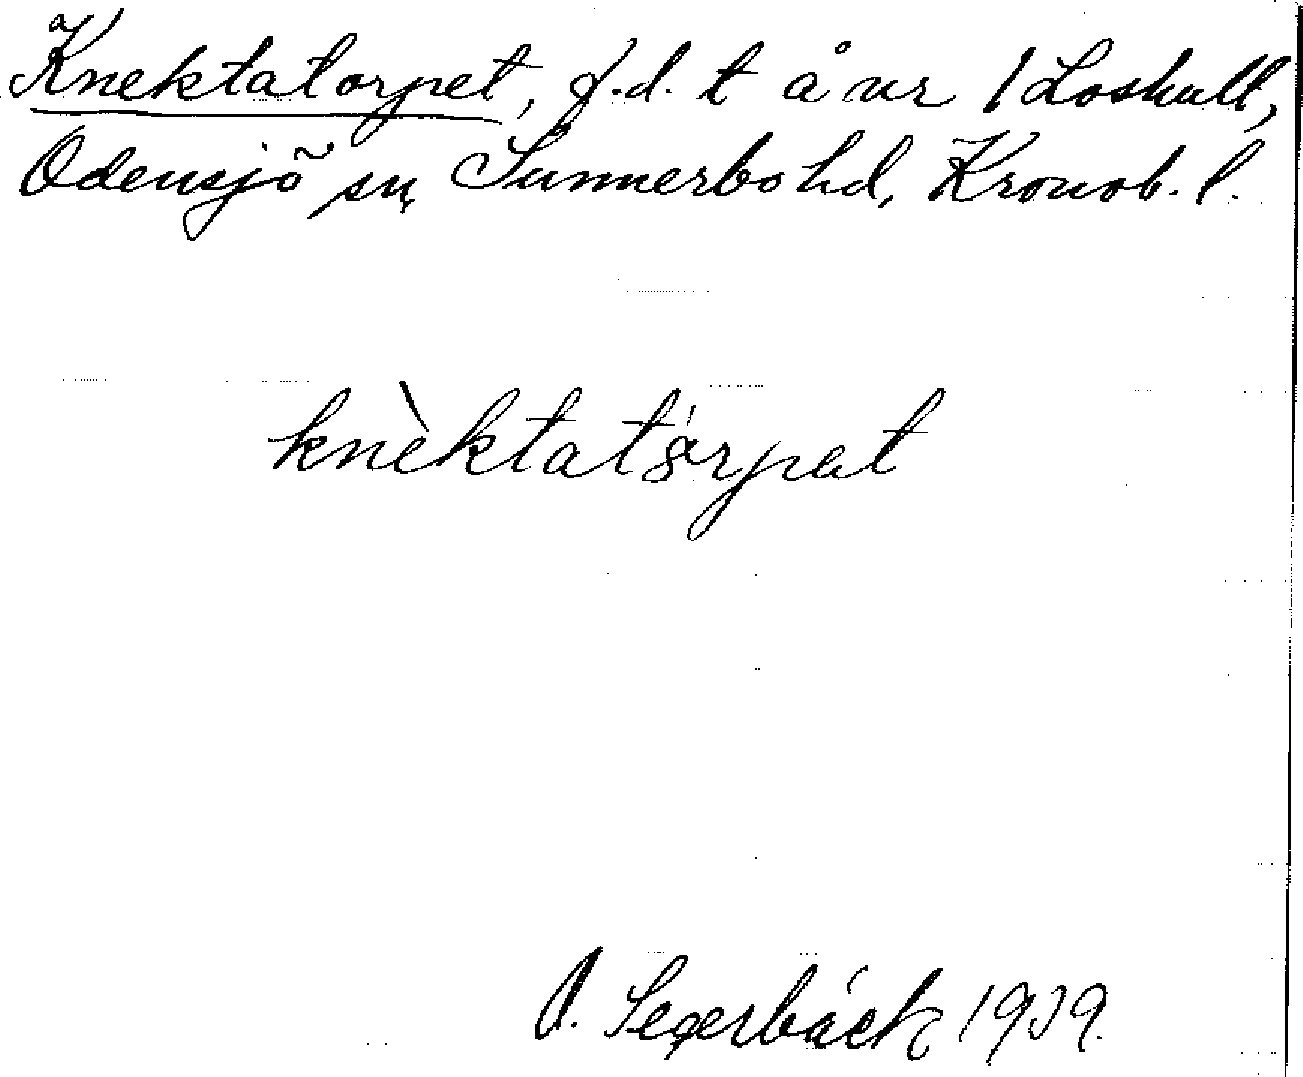 Knektatorpet, f.d. t å nr 1 Loshult,
Odensjö sn, Sunnerbo hd, Kronob. l.
knèktatårpat
A. Segerbäck 1939.